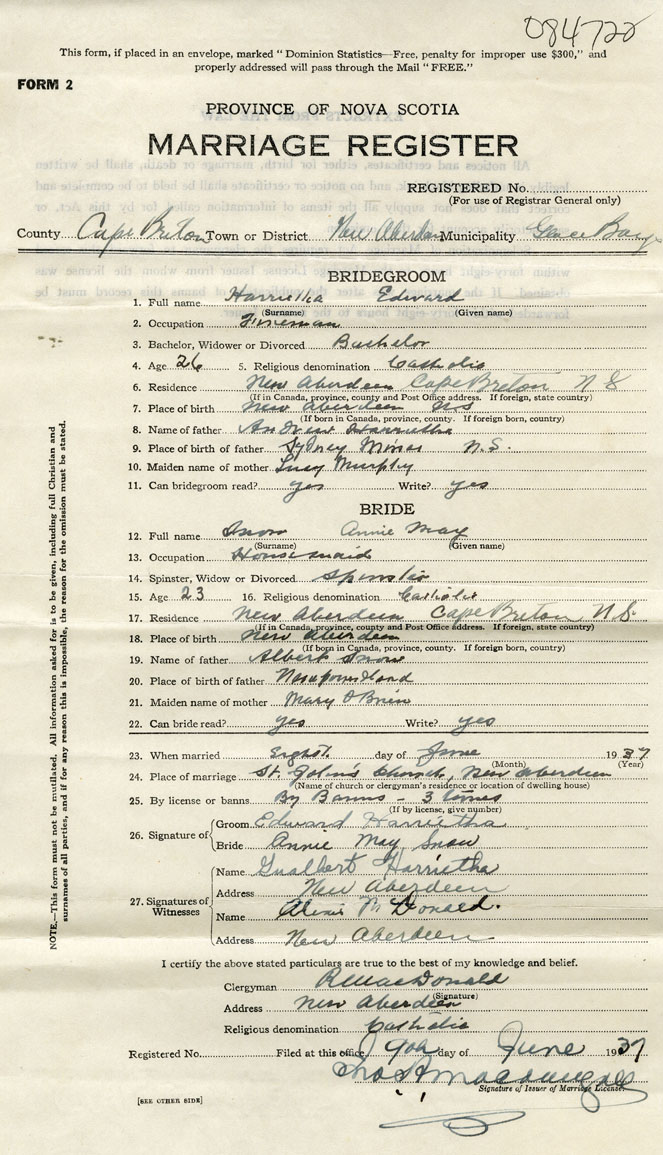 084722
This form, if placed in an envelope, marked "Dominion Statistics—Free, penalty for improper use $300," and
properly addressed will pass through the Mail "FREE."
FORM 2
PROVINCE OF NOVA SCOTIA
MARRIAGE REGISTER
REGISTERED No.
(For use of Registrar General only)
County Cape Breton Town or District New Aberdeen Municipality Glace Bay
BRIDEGROOM
1. Full name Harrietha Edward
(Surname) (Given name)
2. Occupation Fireman
3. Bachelor, Widower or Divorced Bachelor
4. Age 26 5. Religious denomination Catholic
6. Residence New Aberdeen Cape Breton N S
(If in Canada, province, county and Post Office address. If foreign, state country)
7. Place of birth New Aberdeen N.S
(If born in Canada, province, county. If foreign born, country)
8. Name of father Andrew Harrietha
9. Place of birth of father Sydney Mines N.S.
10. Maiden name of mother Lucy Murphy
11. Can bridegroom read? yes Write? yes
BRIDE
12. Full name Snow Annie May
(Surname) (Given name)
13. Occupation Housemaid
14. Spinster, Widow or Divorced Spinster
15. Age 23 16. Religious denomination Catholic
17. Residence New Aberdeen Cape Breton N.S.
(If in Canada, province, county and Post Office address. If foreign, state country)
18. Place of birth New Aberdeen
(If born in Canada, province, county. If foreign born, country)
19. Name of father Albert Snow
20. Place of birth of father Newfoundland
21. Maiden name of mother Mary O'Brien
22. Can bride read? yes Write? yes
23. When married Eight day of June 1937
(Month) (Year)
24. Place of marriage St. John's Church, New Aberdeen
(Name of church or clergyman's residence or location of dwelling house)
25. By license or banns By Banns - 3 times
(If by license, give number)
26. Signature of Groom Edward Harrietha
Bride Annie May Snow
27. Signatures of Witnesses
Name Gualbert Harrietha
Address New Aberdeen
Name Alexis McDonald.
Address New Aberdeen
I certify the above stated particulars are true to the best of my knowledge and belief.
Clergyman R MacDonald
(Signature)
Address New Aberdeen
Religious denomination Catholic
Registered No. Filed at this office 9th day of June 1937
Signature of Issuer of Marriage License.
[SEE OTHER SIDE]
NOTE.—This form must not be mutilated. All information asked for is to be given, including full Christian and
surnames of all parties, and if for any reason this is impossible, the reason for the omission must be stated.